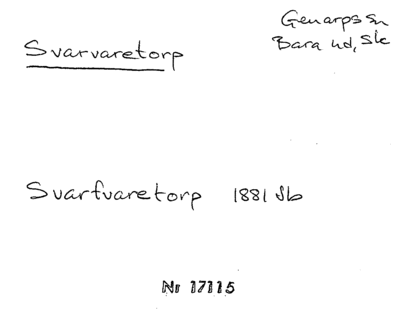 Genarps sn
Bara hd, Sk
Svarvaretorp
Svarfvaretorp 1881 Jb
Nr 17115